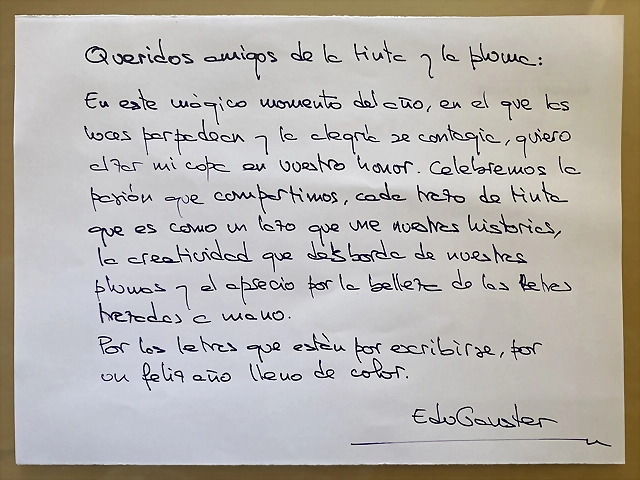 Queridos amigos de la tinta y la pluma:
En este mágico momento del año, en el que las
luces parpadean y la alegría se contagia, quiero
alzar mi copa en vuestro honor. Celebremos la
pasión que compartimos, cada trazo de tinta
que es como un lazo que une nuestras historias,
la creatividad que desborda de nuestras
plumas y el aprecio por la belleza de las letras
trazadas a mano.
Por las letras que están por escribirse, por
un feliz año lleno de color.
EduGauster